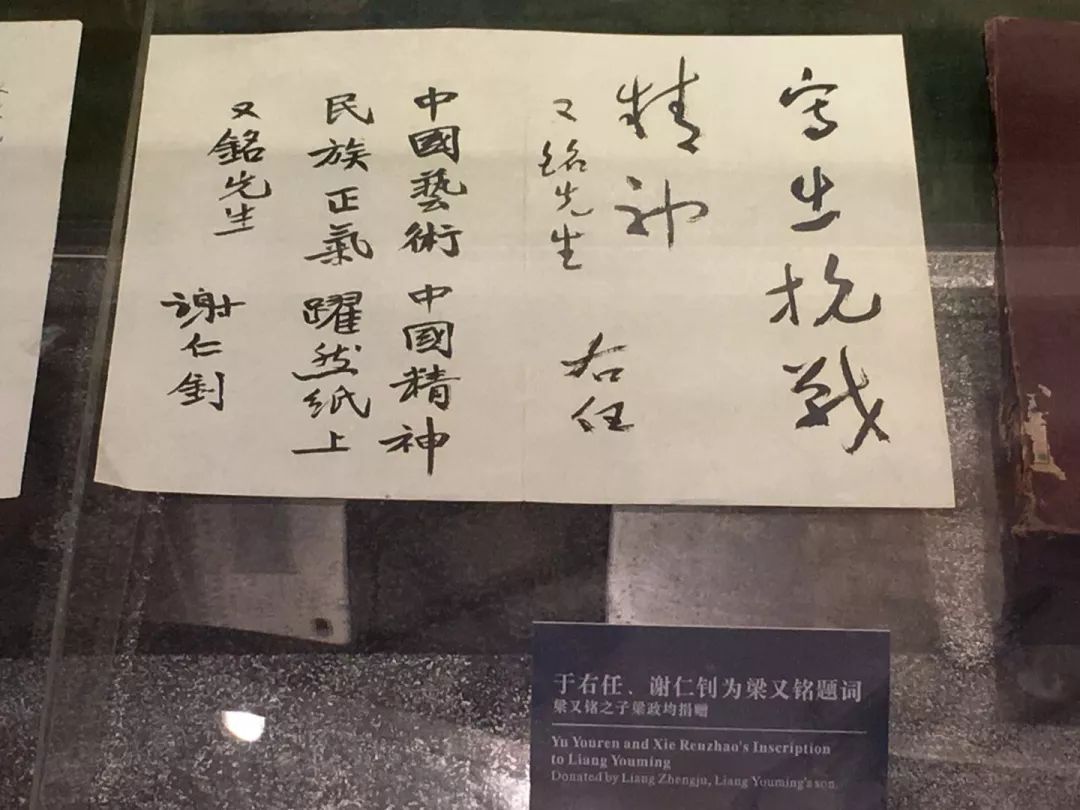 寫生抗战
精神
又铭先生
右任
中國藝術 中國精神
民族正氣 躍然紙上
又銘先生
謝仁釗
于右任、谢仁钊为梁又铭题词
梁又铭之子梁政均捐赠
Yu Youren and Xie Renzhao's Inscription
to Liang Youming
Donated by Liang Zhengju, Liang Youming's son.